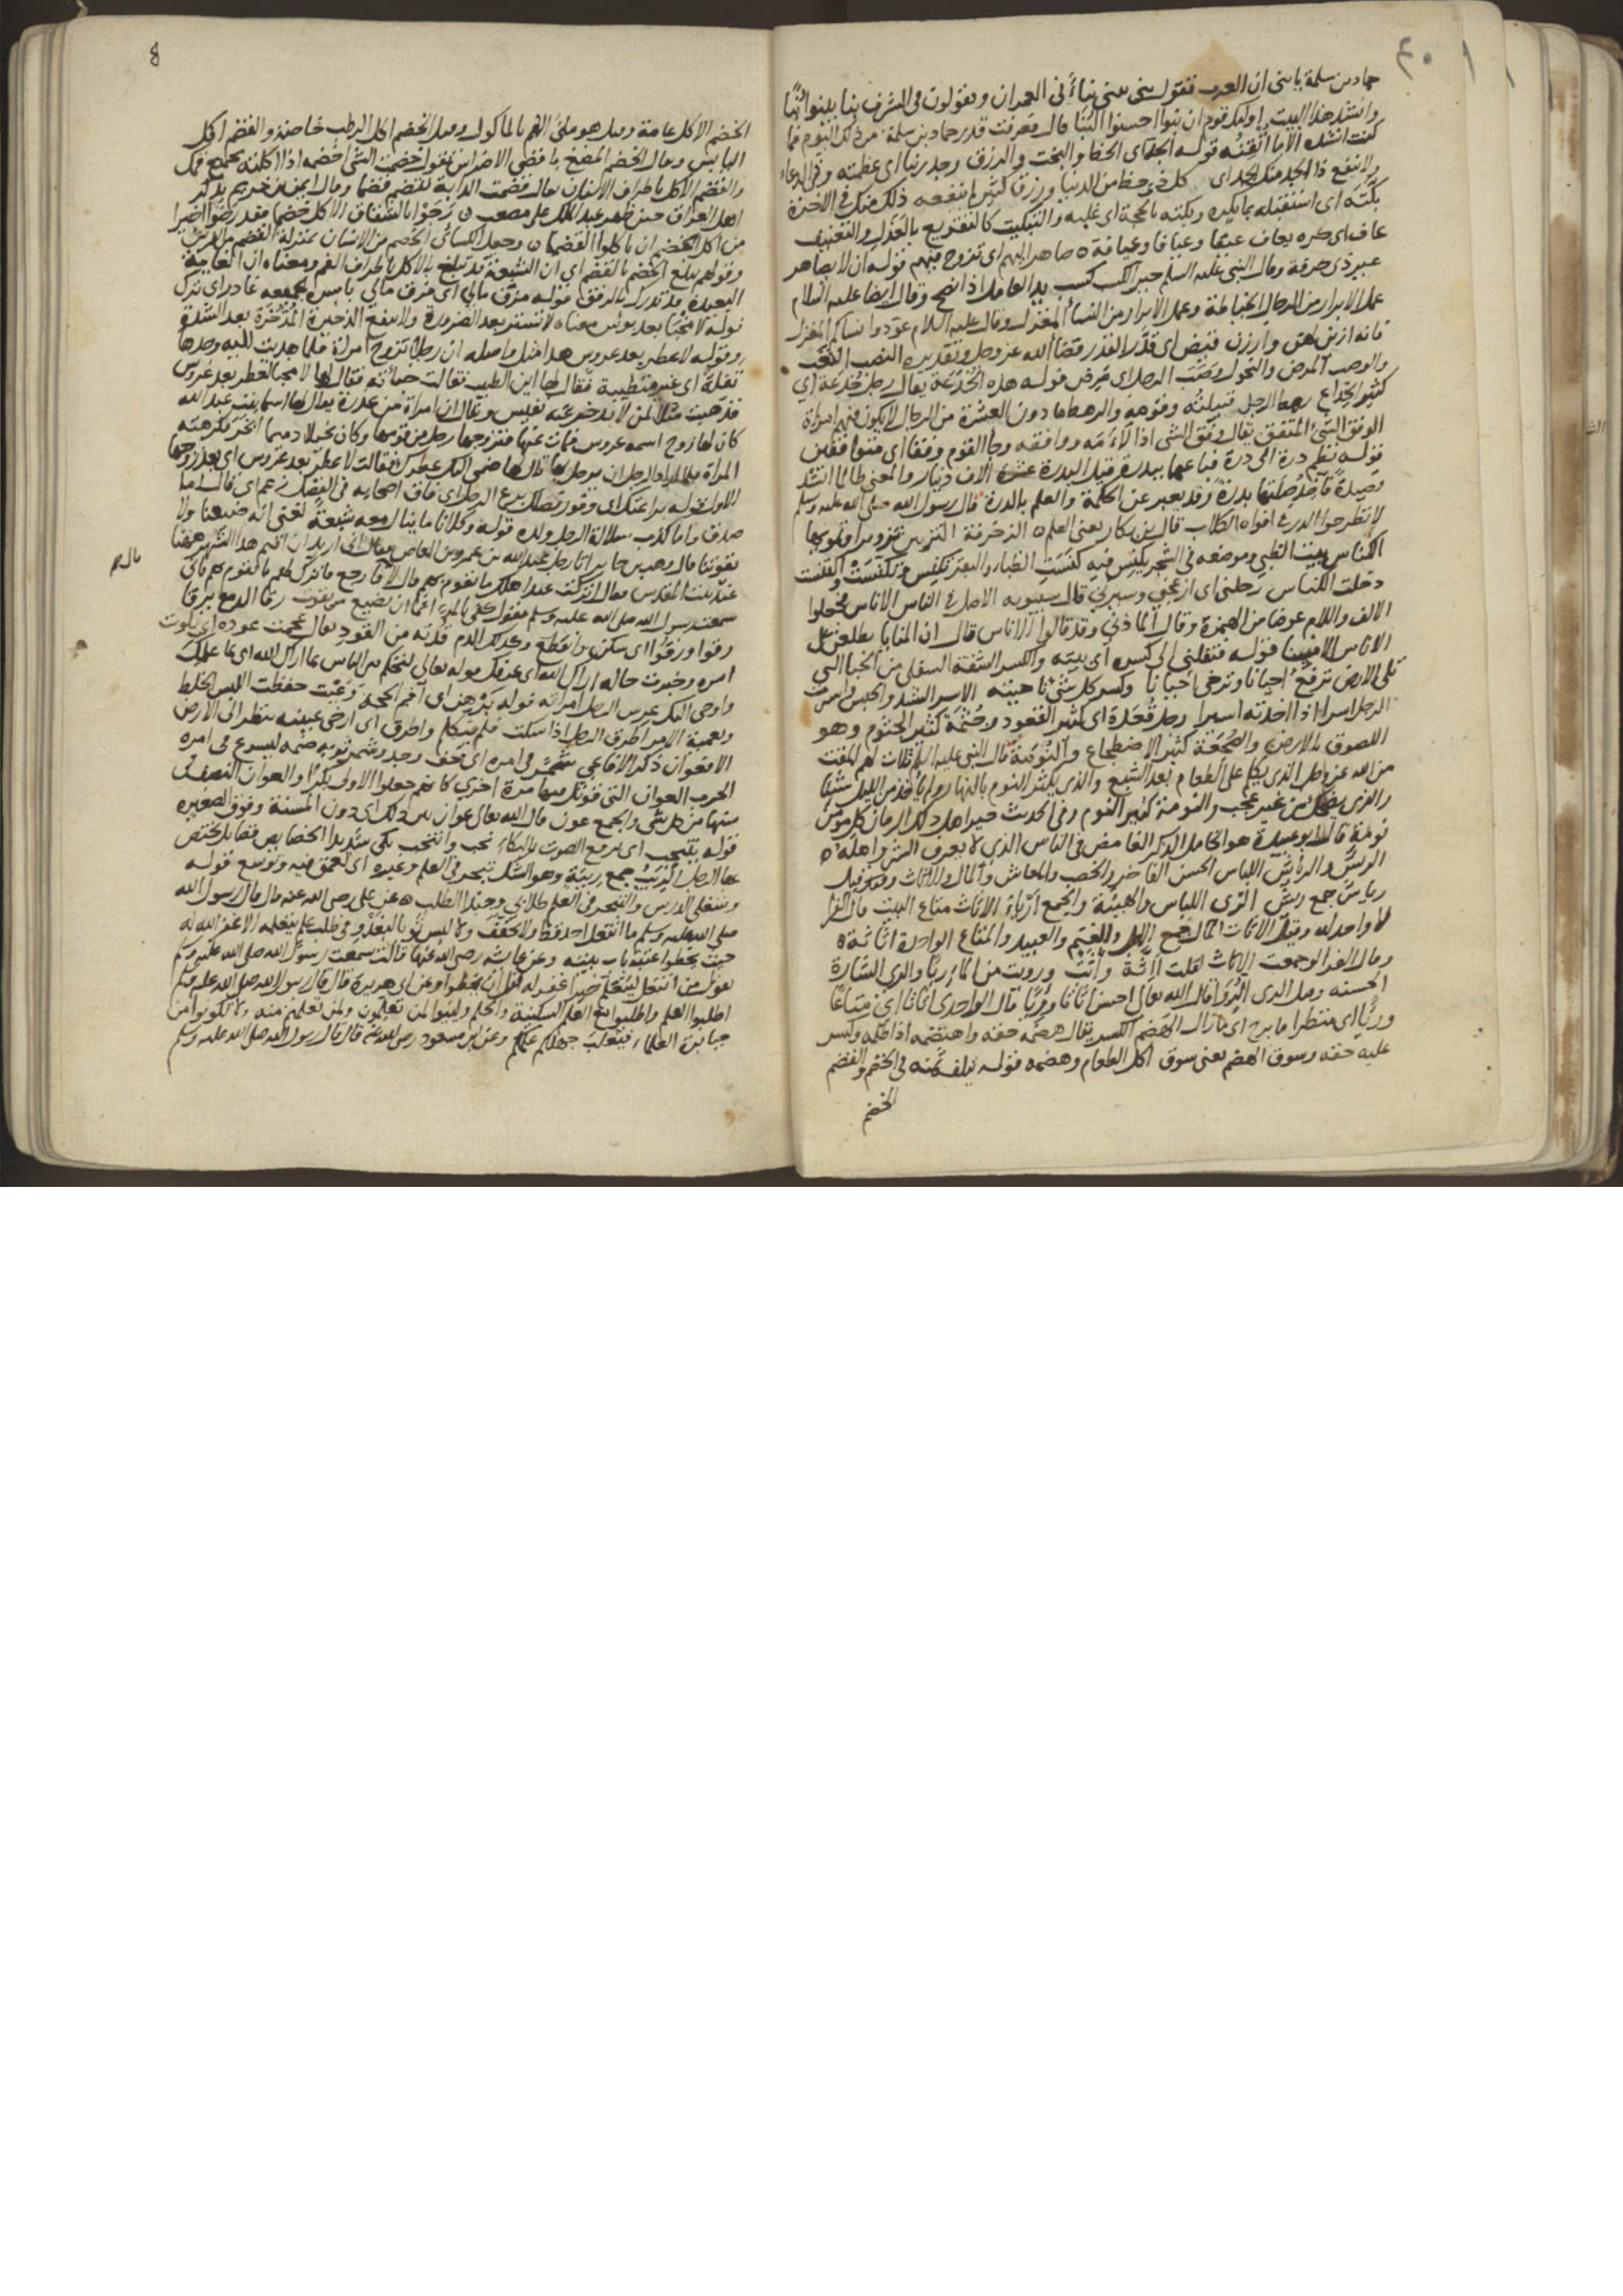 ٤٠
حماد بن سلمة يا بنى ان العرب تقول بنى يبنى بناءً فى العمران ويقولون فى الشرف بنا يبنوا بُنًا
وانشد هذا البيت اولئك قوم ان بنوا احسنوا البُنا قال فعرفت قدر حماد بن سلمة من ذلك اليوم فما
كنت انشده الا ما اتقنته قوله الجد اى الحظ والبخت والرزق وجد ربنا اى عظمته وفى الدعاء
ولا ينفع ذا الجد منك الجد اى كل ذى حظ من الدنيا ورزق كثير لم ينفعه ذلك منك فى الاخرة
بكته اى استقبله بما يكره وبكته بالحجة اى غلبه والتبكيت كالتقريع بالعذل والتعنيف
عاف اى كره يعاف عيفا وعيافا وعيافة صاهر اليهم اى تزوج منهم قوله ان لا يصاهر
غير ذى حرفة وقال النبى عليه السلم خير الكسب كسب يد العامل اذا نصح وقال ايضا عليه السلام
عمل الابرار من الرجال الخياطة وعمل الابرار من النساء المغزل وقال عليه السلام عودوا نساكم المغزل
فانه ازين لهن وارزن قيض اى قدر القدر قضاء الله عز وجل وتقديره النصب التعب
والوصب المرض والنحول وصب الرجل اى مرض قوله هذه الخدعة يقال رجل خُدَعة اى
كثير الخداع رهط الرجل قبيلته وقومه والرهط ما دون العشرة من الرجال لا يكون فيهم امراة
الوفق الشئ المتفق يقال وفق الشى اذا لاءمه ووافقه وجا القوم وفقا اى متوافقين
قوله نظم درة الى درة فباعهما ببدرة قيل البدرة عشرة الاف دينار والمعنى طالما انشد
قصيدة فاخذ صلتها بدرة وقد يعبر عن الحكمة والعلم بالدرة قال رسول الله صلى الله عليه وسلم
لا تطرحوا الدر فى افواه الكلاب قال بن بكار يعنى العلم الزخرفة التزيين
الكناس بيت الظبى وموضعه فى الشجر يكنس فيه كنست الظباء والبقر تكنس وتكنست واكتنست
دخلت الكناس رحلنى اى ازعجنى وسيرنى قال سيبويه الاصل فى الناس الاناس فجعلوا
الالف واللام عوضا من الهمزة وقال المازنى وقد قالوا الاناس قال ان المنايا يطلعن على
الاناس الامنينا قوله فنقلنى الى كسره اى بيته والكسر الشقة السفلى من الخبا التى
تلى الارض ترفع احيانا وترخى احيانا وكسر كل شئ ناحيته الاسر الشد والحبس واسرت
الرجل اسرا اذا اخذته اسيرا رجل قُعَدة اى كثير القعود وجُثَمة كثير الجثوم وهو
اللصوق بالارض والضجعة كثير الاضطجاع والنومة قال النبى عليه السلام ثلاث لهم المقت
من الله عز وجل الذى ياكل على الطعام بعد الشبع والذى يكثر النوم بالنهار ولم ياخذ من الليل شيئا
والذى يضحك من غير عجب والنومة كثير النوم وفى الحديث خير اهل ذلك الزمان كل مومن
نومة قال ابو عبيدة هو الخامل الذكر الغامض فى الناس الذى لا يعرف الشر واهله
الريش والرياش اللباس الحسن الفاخر والخصب والمعاش والمال والاثاث وقيل
رياش جمع ريش الزى اللباس والهيئة والجمع ازياء الاثاث متاع البيت قال الفرا
لا واحد له وقيل الاثاث المال جمع الابل والغنم والعبيد والمتاع الواحدة اثاثة
وقال الفرا لو جمعت الاثاث لقلت آثّة وأُثُث ورويت من الماء ريا والرى الشارة
الحسنه قال الله تعالى احسن اثاثا وريا قال الواحدى اثاثا اى متاعا
وريا اى منظرا ما برح اى ما زال الهضم الكسر يقال هضمه حقه واهتضمه اذا ظلمه وكسر
عليه حقه وسوق الهضم يعنى سوق اكل الطعام وهضمه قوله فى الخضم والقضم
الخضم
٤
الخضم الاكل عامة وقيل هو ملئ الفم بالماكول وقيل الخضم اكل الرطب خاصة والقضم اكل
اليابس وقال الخضم المضغ باقصى الاضراس تقول خضمت الشى اخضمه اذا اكلته بجميع فمك
والقضم الاكل باطراف الاسنان يقال قضمت الدابة تقضم قضما وقال ايمن بن خريم يذكر
اهل العراق حين ظهر عبد الملك على مصعب رجوا بالشقاق الاكل خضما فقد رضوا اخيرا
من اكل الخضم ان ياكلوا القضما وجعل الكسائى الخضم من الانسان بمنزلة القضم من الفرس
وقولهم يبلغ الخضم بالقضم اى ان الشبعة قد تبلغ بالاكل باطراف الفم ومعناه ان الغاية
البعيدة قد تدرك بالرفق قوله مزق مالى اى فرق مالى باسره بجميعه غادر اى ترك
قوله لا مخبا بعد بوس معناه لا تستتر بعد الضرورة ولا ينفع الذخيرة المدخرة بعد الشدة
وقوله لا عطر بعد عروس هذا مثل واصله ان رجلا تزوج امراة فلما هديت اليه وجدها
تفلة اى غير متطيبة فقال لها اين الطيب فقالت خبائته فقال لها لا مخبا لعطر بعد عروس
فذهبت مثلا لمن لا يدخر عنه نفيس ويقال ان امراة من عذرة يقال لها اسما بنت عبد الله
كان لها زوج اسمه عروس فمات عنها فتزوجها رجل من قومها وكان بخيلا دميما
المراة فلما اراد الرجل ان يرحل بها قال لها ضمى اليك عطرك فقالت لا عطر بعد عروس اى بعد زوجها
الاول قوله براعتك اى وفور فضلك برع الرجل اى فاق اصحابه فى الفضل زعم اى قال اما
صدق واما كذب سلالة الرجل ولده قوله وكلانا ما ينال معه شبعة
عند بيت المقدس
مال هم
سمعت رسول الله صلى الله عليه وسلم يقول كفى بالمرء اثما ان يضيع من يقوت رقا الدمع يرقا
رقوا ورقوا اى سكن وانقطع وكذلك الدم قدته من القود يقال عجمت عوده اى بلوت
امره وخبرت حاله اراك الله اى عرفك قوله تعالى لتحكم بين الناس بما اراك الله اى بما علمك
الافعوان ذكر الافاعى شمر فى امره اى خف وجد وشمر ثوبه ضمه ليسرع فى امره
الحرب العوان التى قوتل فيها مرة اخرى كانهم جعلوا الاولى بكرا والعوان النصف فى
سنها من كل شى والجمع عون قال الله تعالى عوان بين ذلك اى دون المسنة وفوق الصغيره
قوله ينتحب اى يرفع الصوت بالبكاء نحب وانتحب بكى شديدا الخصايص فضايل يختص
بها الرجل الريب جمع ريبة وهو الشك تبحر فى العلم وغيره اى تعمق فيه وتوسع قوله
وشغلى الدرس والتبحر فى العلم طلابى وحبذا الطلب عن على رضى الله عنه قال قال رسول الله
صلى الله عليه وسلم ما انتعل احد قط ولا تخفف ولا لبس ثوبا ليغدو فى طلب علم يتعلمه الا غفر الله له
حيث يخطوا عتبة باب بيته وعن عايشه رضى الله عنها قالت سمعت رسول الله صلى الله عليه وسلم
يقول من انتعل ليتعلم خيرا غفر له قبل ان يخطوا وعن ابى هريرة قال قال رسول الله صلى الله عليه وسلم
اطلبوا العلم واطلبوا مع العلم السكينة والحلم ولينوا لمن تعلمون ولمن تعلمتم منه ولا تكونوا من
جبابرة العلماء فيغلب جهلكم علمكم وعن ابن مسعود رضى الله عنه قال قال رسول الله صلى الله عليه وسلم